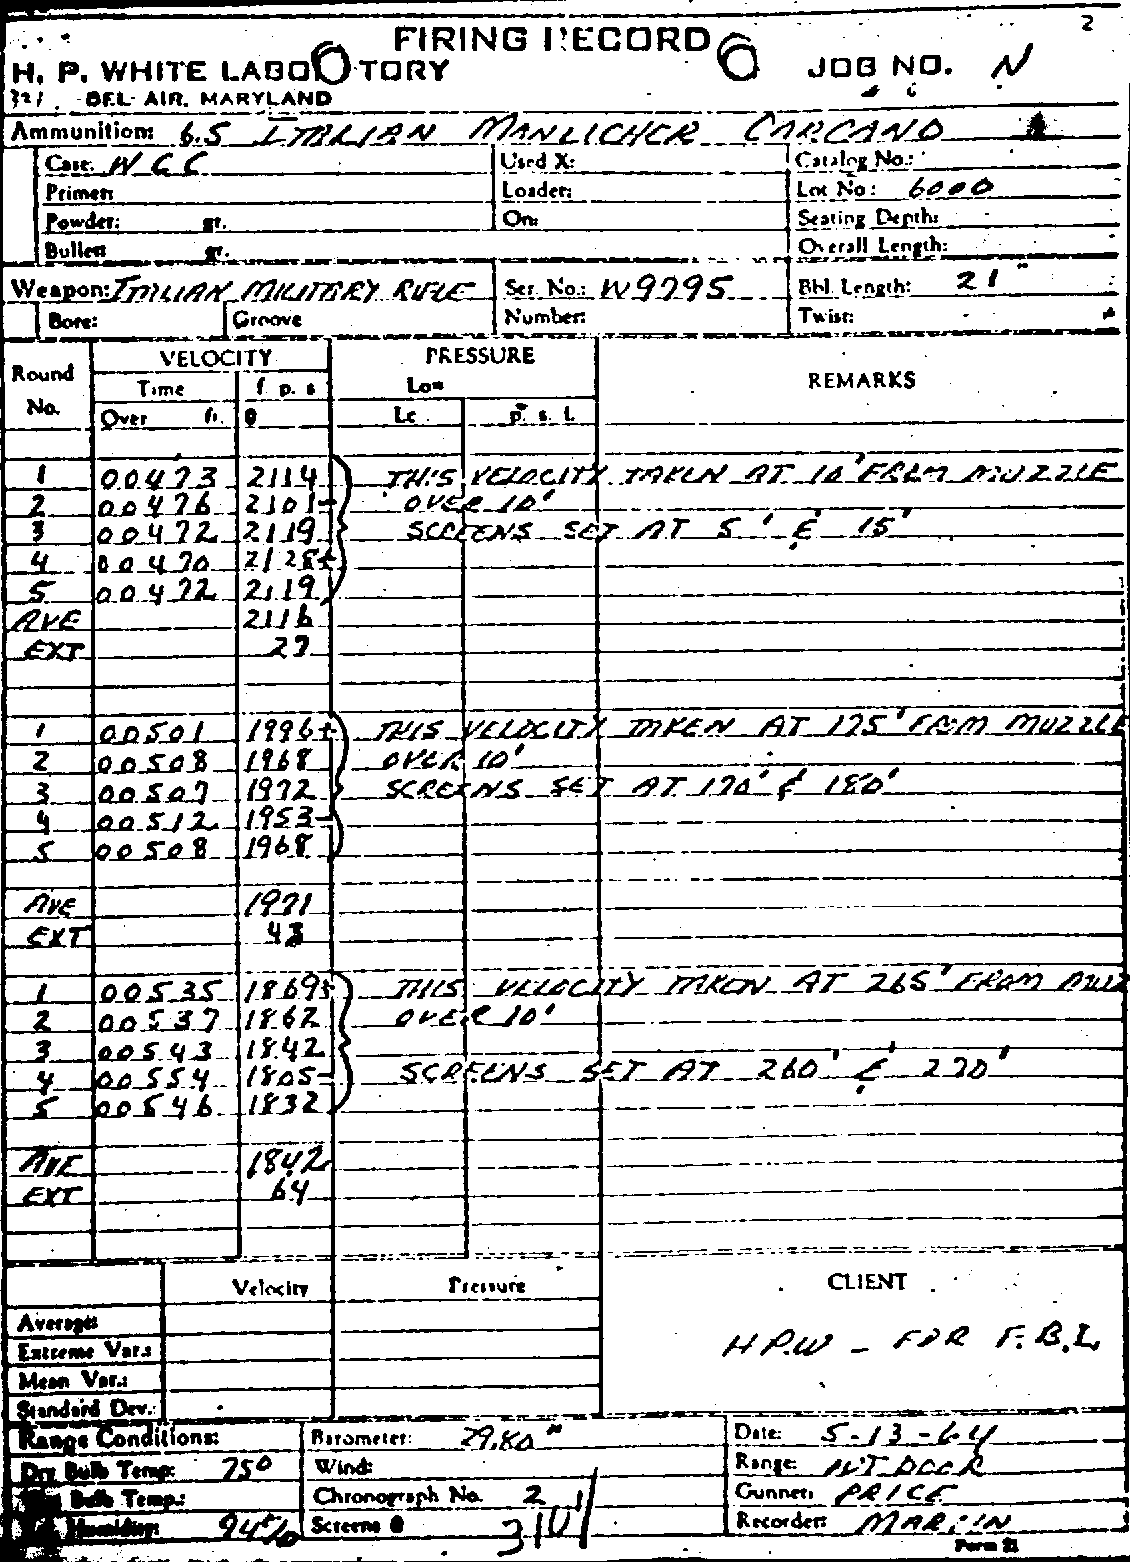 2
FIRING RECORD
H. P. WHITE LABORATORY JOB NO. N
BEL AIR, MARYLAND
Ammunition: 6.5 ITALIAN MANLICHER CARCANO
Case: W C C Used X: Catalog No.:
Primer: Loader: Lot No: 6000
Powder: gr. On: Seating Depth:
Bullet: gr. Overall Length:
Weapon: ITALIAN MILITARY RIFLE Ser. No.: W9795 Bbl. Length: 21"
Bore: Groove Number: Twist:
VELOCITY PRESSURE
Round No. Time f. p. s Low REMARKS
Over ft. @ Lc p. s. i.
1 00473 2114 THIS VELOCITY TAKEN AT 10' FROM MUZZLE
2 00476 2101- OVER 10'
3 00472 2119 SCREENS SET AT 5' & 15'
4 00470 2128+
5 00472 2119
AVE 2116
EXT 27
1 00501 1996+ THIS VELOCITY TAKEN AT 175' FROM MUZZLE
2 00508 1968 OVER 10'
3 00507 1972 SCREENS SET AT 170' & 180'
4 00512 1953-
5 00508 1968
AVE 1971
EXT 43
1 00535 1869+ THIS VELOCITY TAKEN AT 265' FROM MUZ
2 00537 1862 OVER 10'
3 00543 1842
4 00554 1805- SCREENS SET AT 260' & 270'
5 00546 1832
AVE 1842
EXT 64
Velocity Pressure CLIENT
Average:
Extreme Var.: H.P.W - FOR F.B.I.
Mean Var.:
Standard Dev.:
Range Conditions: Barometer: 29.80" Date: 5-13-64
Dry Bulb Temp: 75° Wind: Range: OUT DOOR
Bulb Temp.: Chronograph No. 2 Gunner: PRICE
Humidity: 94% Screens @ Recorder: MARTIN
Form 21